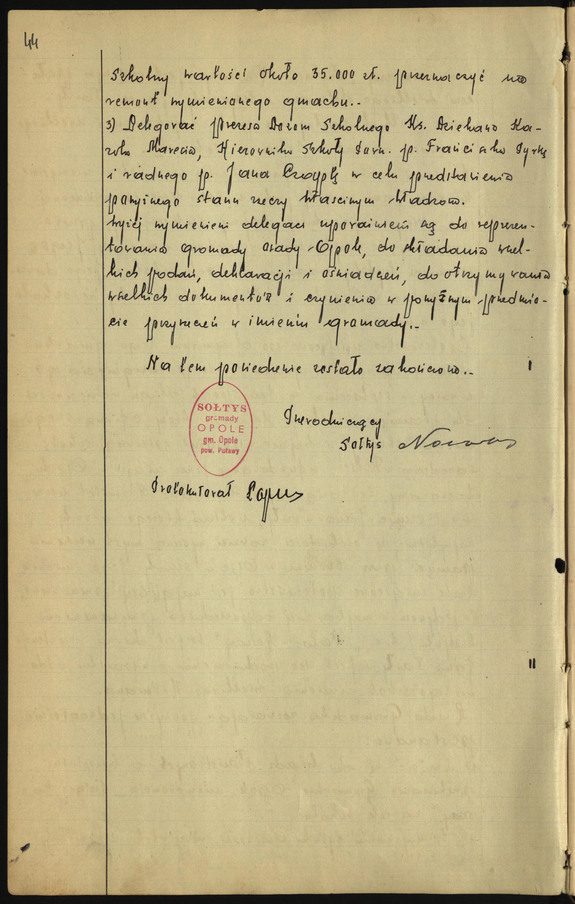 44
Szkolny wartości około 35.000 zł. przeznaczyć na
remont wymienionego gmachu..
3) Delegować prezesa Dozoru Szkolnego Ks. Dziekana Ka-
rola Marecia, Kierownika Szkoły p. Franciszka
i radnego p. Jana Czapłę w celu przedstawienia
powyższego stanu rzeczy właściwym władzom.
Wyżej wymienieni delegaci upoważnieni są do reprezen-
towania gromady osady Opole, do składania wszel-
kich podań, deklaracji i oświadczeń, do otrzymywania
wszelkich dokumentów i czynienia w powyższym przedmio-
cie przyrzeczeń w imieniu gromady..
Na tem posiedzenie zostało zakończone..
SOŁTYS
gromady
OPOLE
gm. Opole
pow. Puławy
Przewodniczący
Sołtys
Protokułował